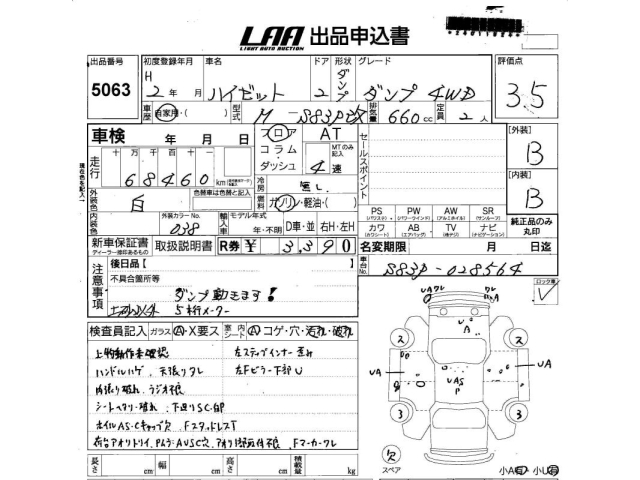 LAA 出品申込書
LIGHT AUTO AUCTION
出品番号 初度登録年月 車名 ドア 形状 グレード 評価点
5063 H 2年 月 ハイゼット 2 ダンプ ダンプ 4WD 3.5
車歴 自家用・( ) 型式 M-S83P改 排気量 660cc 定員 2人
車検 年 月 日 フロア AT
コラム MTのみ記入
ダッシュ 4速
十万 万 千 百 十 一
走行 68460 km
セールスポイント
[外装]
B
[内装]
B
冷房 無し
外装色 白 色替車は色替と記入
燃料 ガソリン・軽油・( )
内装色 外装カラーNo. 038 輸入車 モデル年式 年・不明 D車・並 右H・左H
PS (パワステ) PW (パワーウインド) AW (アルミホイル) SR (サンルーフ) 純正品のみ丸印
カワ (カワシート) AB (エアバッグ) TV (後ナシ) ナビ (ナビゲーション)
新車保証書 取扱説明書 R券 ¥ 3,390 名変期限 月 日迄
ディーラー捺印あるもの
車台No. S83P-028564
注意事項 後日品[ ]
不具合箇所等
ダンプ動きます!
5桁メーター
ロック車
検査員記入 ガラス Ⓐ・X要ス 室内 シート Ⓐコゲ・穴・汚れ・破れ
上物動作未確認 左ステップインナー歪み
ハンドルハゲ、天張りタレ 左Fピラー下部U
内張り破れ、ラジオ不良
シートヘタリ・破れ、下廻りSC・錆
ホイルAS・Cキャップ欠 FスタッドレスT
荷台アオリトリイ、PムラAVSC穴、アオリ
Fマーカーワレ
UA ワレ
A
2 2
UA UAS P UA
3 3
欠
スペア
小A有 小U有
長さ cm 幅 cm 高さ cm 積載量 kg